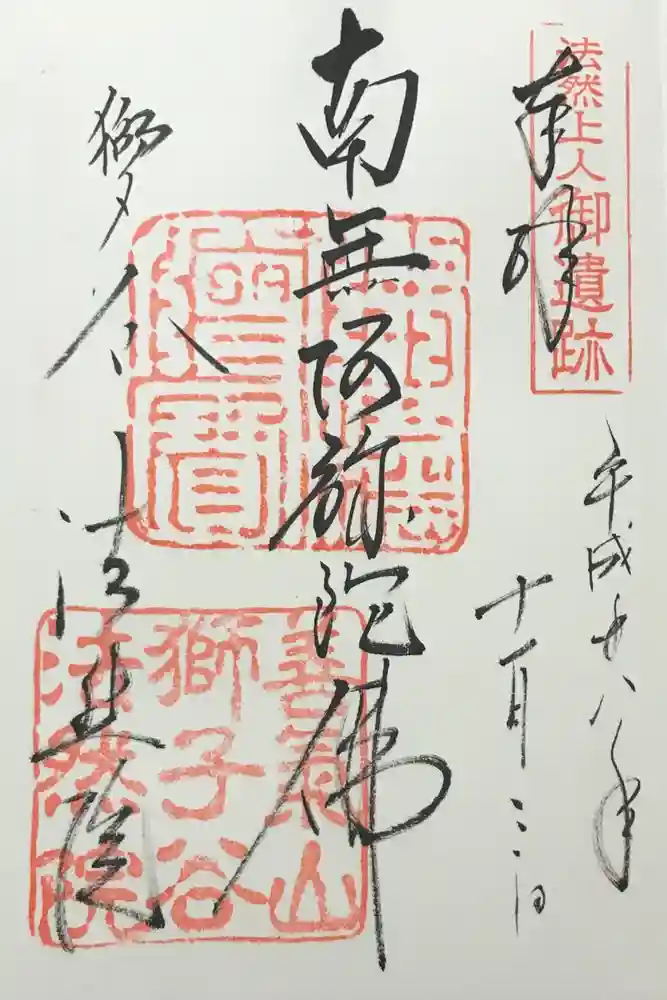 法然上人御遺跡
奉拝
平成廿八年
十一月三日
南無阿弥陀佛
獅子谷
法然院
善氣山
獅子谷
法然院